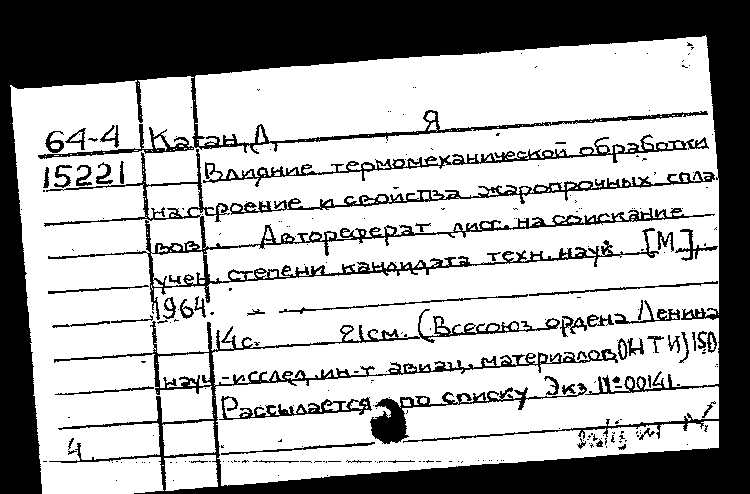 64-4 Каган, Д, Я
15221 Влияние термомеханической обработки
на строение и свойства жаропрочных спла
вов. Автореферат дисс. на соискание
учен. степени кандидата техн. наук. [М.],
1964.
14с. 21см. (Всесоюз ордена Ленина
науч.-исслед. ин-т авиац. материалов, ОНТИ) 150
Рассылается по списку Экз. №00141.
4.